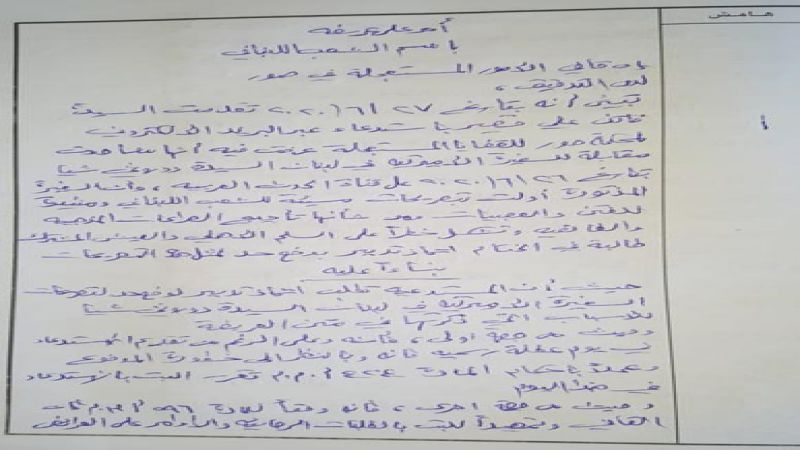 هامش
أمر على عريضة
باسم الشعب اللبناني
إن قاضي الأمور المستعجلة في صور
لدى التدقيق،
تبين أنه بتاريخ ٢٧/٦/٢٠٢٠ تقدمت السيدة
فاتن علي قصير باستدعاء عبر البريد الالكتروني
لمحكمة صور للقضايا المستعجلة عرضت فيه أنها شاهدت
مقابلة للسفيرة الأميركية في لبنان السيدة دوروثي شيا
بتاريخ ٢٦/٦/٢٠٢٠ على قناة الحدث العربية، وأن السفيرة
المذكورة أدلت بتصريحات مسيئة للشعب اللبناني
للفتن والعصبيات من شأنها تأجيج الصراعات المذهبية
والطائفية وتشكل خطراً على السلم الأهلي والعيش المشترك
طالبة في الختام اتخاذ تدبير بدفع حد لمثل هذه التصريحات
بناءً عليه
حيث أن المستدعية تطلب اتخاذ تدبير لدفع حد لتصريحات
السفيرة الأميركية في لبنان السيدة دوروثي شيا
للأسباب التي ذكرتها في متن العريضة
وحيث من جهة أولى، فأنه وعلى الرغم من تقديم الاستدعاء
في يوم عطلة رسمية فانه وبالنظر الى خطورة الموضوع
وعملاً بأحكام المادة أ.م.م. تقرر البت بالاستدعاء
في هذا اليوم
وحيث من جهة أخرى، فانه وفقاً للمادة أ.م.م. فان
القاضي البت بالطلبات الرجائية والأوامر على العرائض